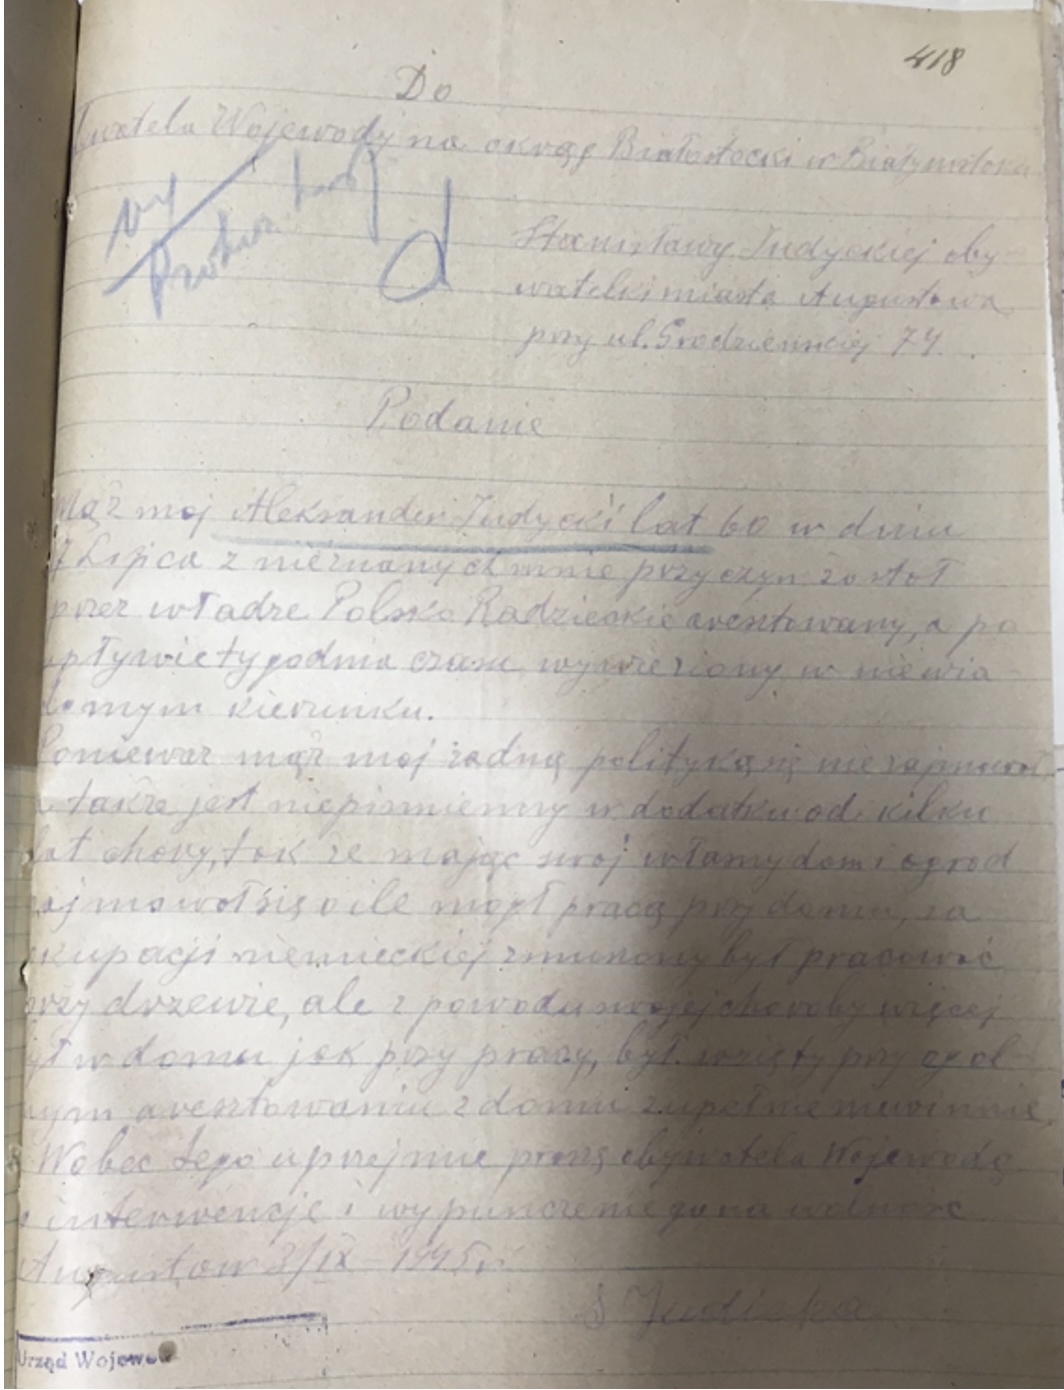 418
Do
Wojewody na okręg Białostocki w Białymstoku
Stanisławy Judyckiej oby-
watelki miasta Augustowa
przy ul. Grodzieńskiej 74.
Podanie
Mąż moj Aleksander Judycki lat 60 w dniu
Lipca z nieznanych mnie przyczyn został
przez władze Polsko Radzieckie aresztowany, a po
upływie tygodnia czasu wywieziony w niewia-
domym kierunku.
Poniewarz mąż moj żadną polityką się nie zajmował
a także jest niepismienny w dodatku od kilku
lat chory, tak że mając swoj własny dom i ogrod
zajmował się o ile mogł pracą przy domu, za
okupacji niemieckiej zmuszony był pracować
przy drzewie, ale z powodu swojej choroby więcej
był w domu jak przy pracy, był wzięty przy ogol-
nym aresztowaniu z domu zupełnie niewinnie.
Wobec tego uprzejmie proszę obywatela Wojewodę
o interwencję i wypuszczenie go na wolność
Augustow 3/IX - 1945 r.
S Judicka
Urząd Wojewo